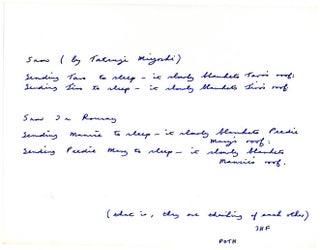 Snow (by Tatsuji Miyoshi)
Sending Taro to sleep – it slowly blankets Taro's roof:
Sending Jiro to sleep – it slowly blankets Jiro's roof
Snow In Rousay
Sending Mansie to sleep – it slowly blankets Peedie
Mary's roof:
Sending Peedie Mary to sleep – it slowly blankets
Mansie's roof.
(that is, they are thinking of each other)
IHF
POTH